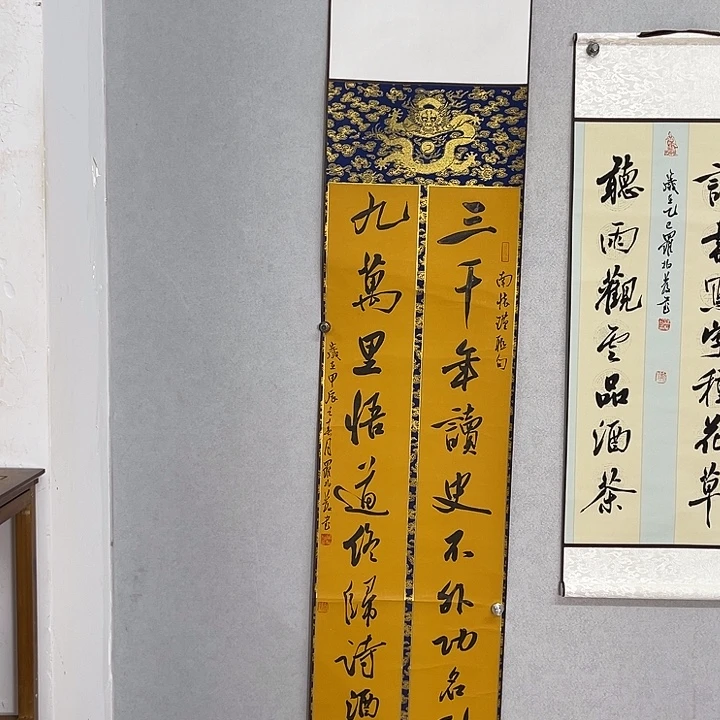 三千年讀史不外功名利
南怀瑾联句
九萬里悟道終歸詩酒
歲在甲辰之
聽雨觀雲品酒茶
歲在乙巳羅
讀書寫字種花草